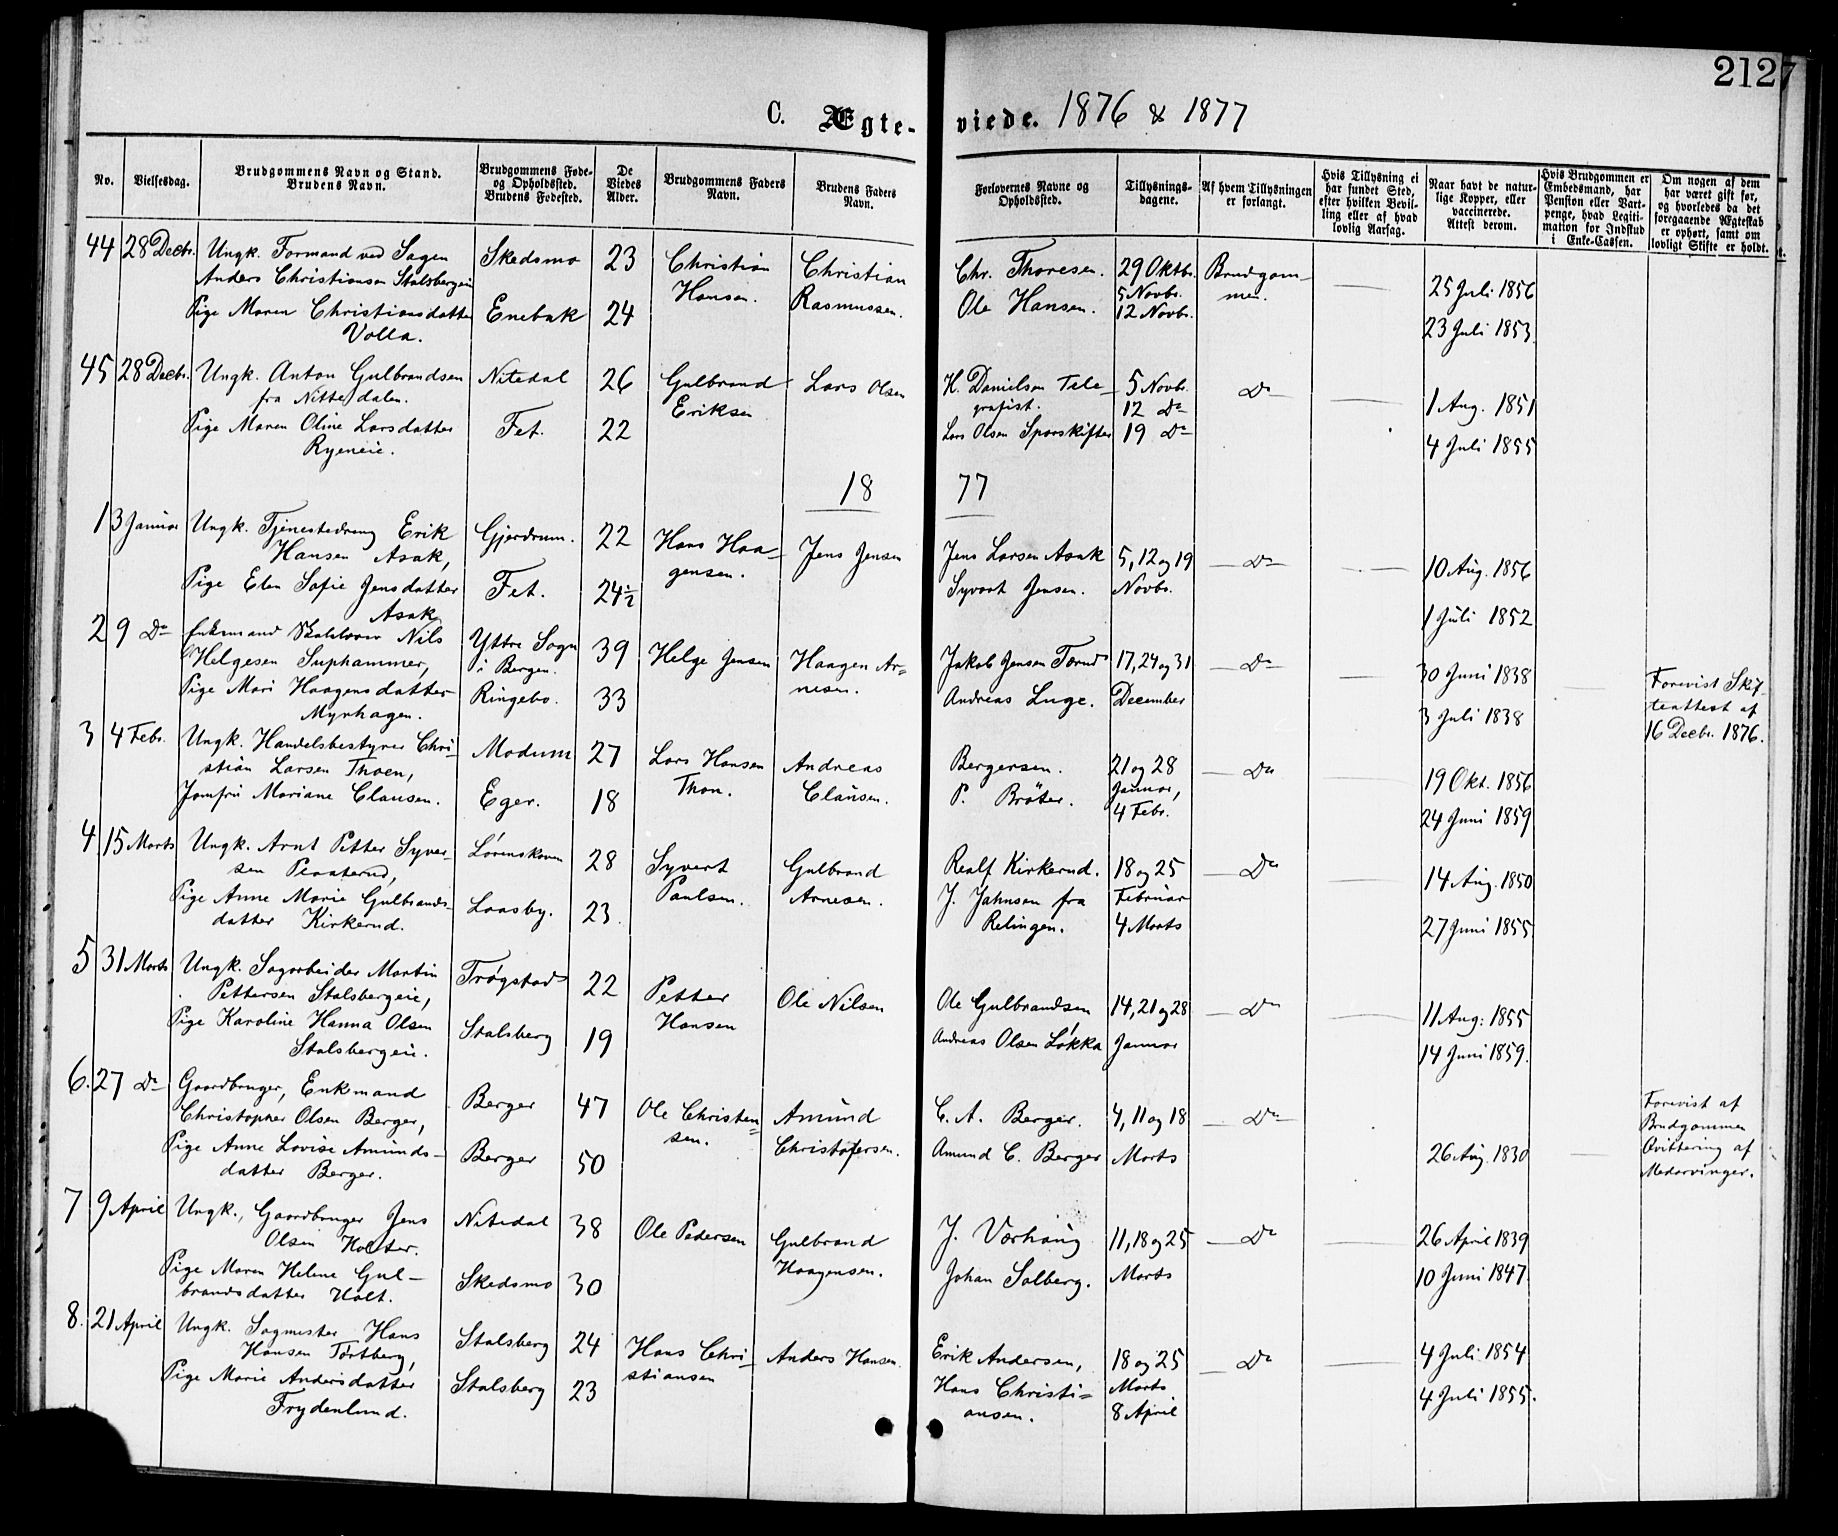 2127
C. Ægte-viede. 1876 & 1877
No.
Vielsesdag.
Brudgommens Navn og Stand.
Brudens Navn.
Brudgommens Føde-
og Opholdssted.
Brudens Fødested.
De
Viedes
Alder.
Brudgommens Faders
Navn.
Brudens Faders
Navn.
Forlovernes Navne og
Opholdssted.
Tillysnings-
dagene.
Af hvem Tillysningen
er forlangt.
Hvis Tillysning ei
har fundet Sted,
efter hvilken Bevil-
ling eller af hvad
lovlig Aarsag.
Naar havt de natur-
lige Kopper, eller
vaccinerede.
Attest derom.
Hvis Brudgommen er
Embedsmand, har
Pension eller Vart-
penge, hvad Legiti-
mation for Indskud
i Enke-Cassen.
Om nogen af dem
har været gift før,
og hvorledes da det
foregaaende Ægteskab
er ophørt, samt om
lovligt Skifte er holdt.
44 28 Decbr. Ungk. Formand ved Sagen Skedsmo 23 Christian Christian Chr. Thoresen. 29 Oktbr. Brudgom-
Anders Christiansen Stalsbergeie Hansen. Rasmussen. Ole Hansen. 5 Novbr. men. 25 Juli 1856
Pige Maren Christiansdatter Enebak 24 12 Novbr. 23 Juli 1853
Volla.
45 28 Decbr. Ungk. Anton Gulbrandsen Nitedal 26 Gulbrand Lars Olsen H. Danielsen Tele- 5 Novbr. Do
fra Nittedalen. Eriksen grafist. 12 Do 1 Aug. 1851
Pige Maren Oline Larsdatter Fet. 22 Lars Olsen Sporskifter 19 Do 4 Juli 1855
Ryeneie.
18 77
1 3 Januar Ungk. Tjenestedreng Erik Gjerdrum. 22 Hans Haa- Jens Jensen Jens Larsen Asak 5, 12 og 19 Do 10 Aug. 1856
Hansen Asak, gensen. Syvart Jensen. Novbr.
Pige Elen Sofie Jensdatter Fet. 24½ 1 Juli 1852
Asak
2 9 Do Enkemand Nils Yttre Sogn 39 Helge Jensen Haagen Ar- Jakob Jensen 17, 24 og 31 Do 30 Juni 1838 Forevist Skif-
Helgesen Suphammer, i Bergen. nesen. Andreas Luge. December teattest af
Pige Mari Haagensdatter Ringebo. 33 3 Juli 1838 16 Decbr. 1876.
Myrhagen.
3 4 Febr. Ungk. Handelsbestyrer Chri- Modum 27 Lars Hansen Andreas Bergersen. 21 og 28 Do 19 Okt. 1856
stian Larsen Thoen, Thon. Clausen. P. Bråter. Januar,
Jomfru Mariane Clausen. Eger. 18 4 Febr. 24 Juni 1859
4 15 Marts Ungk. Arnt Petter Syver- Lørenskoven 28 Syvert Gulbrand Realf Kirkerud. 18 og 25 Do 14 Aug. 1850
sen Paulsen. Arnesen. J. Jahnsen fra Februar
Pige Anne Marie Gulbrands- Laasby. 23 Relingen. 4 Marts 27 Juni 1855
datter Kirkerud.
5 31 Marts Ungk. Sagarbeider Martin Trøgstad 22 Petter Ole Nilsen Ole Gulbrandsen 14, 21 og 28 Do 11 Aug. 1855
Pettersen Stalsbergeie, Hansen Andreas Olsen Løkka Januar
Pige Karoline Hanna Olsen Stalsberg 19 14 Juni 1859.
Stalsbergeie.
6. 27 Do Gaardbruger, Enkmand Berger 47 Ole Christen- Amund C. A. Berger. 4, 11 og 18 Do Forevist af
Christopher Olsen Berger, sen. Christofersen. Amund C. Berger Marts Brudgommen
Pige Anne Lovise Amunds- Berger 50 26 Aug. 1830 Qvittering af
datter Berger. Medarvinger.
7 9 April Ungk., Gaardbruger Jens Nitedal 38 Ole Pedersen Gulbrand J. Vørhaug 11, 18 og 25 Do 26 April 1839
Olsen Holter. Haagensen. Johan Solberg. Marts
Pige Maren Helene Gul- Skedsmo 30 10 Juni 1847.
brandsdatter Holt.
8. 21 April Ungk. Sagmester Hans Stalsberg 24 Hans Chri- Anders Hansen. Erik Andersen, 18 og 25 Do 4 Juli 1854
Hansen Tørtberg, stiansen Hans Christi- Marts
Pige Marie Andersdatter Stalsberg 23 ansen. 8 April 4 Juli 1855.
Frydenlund.